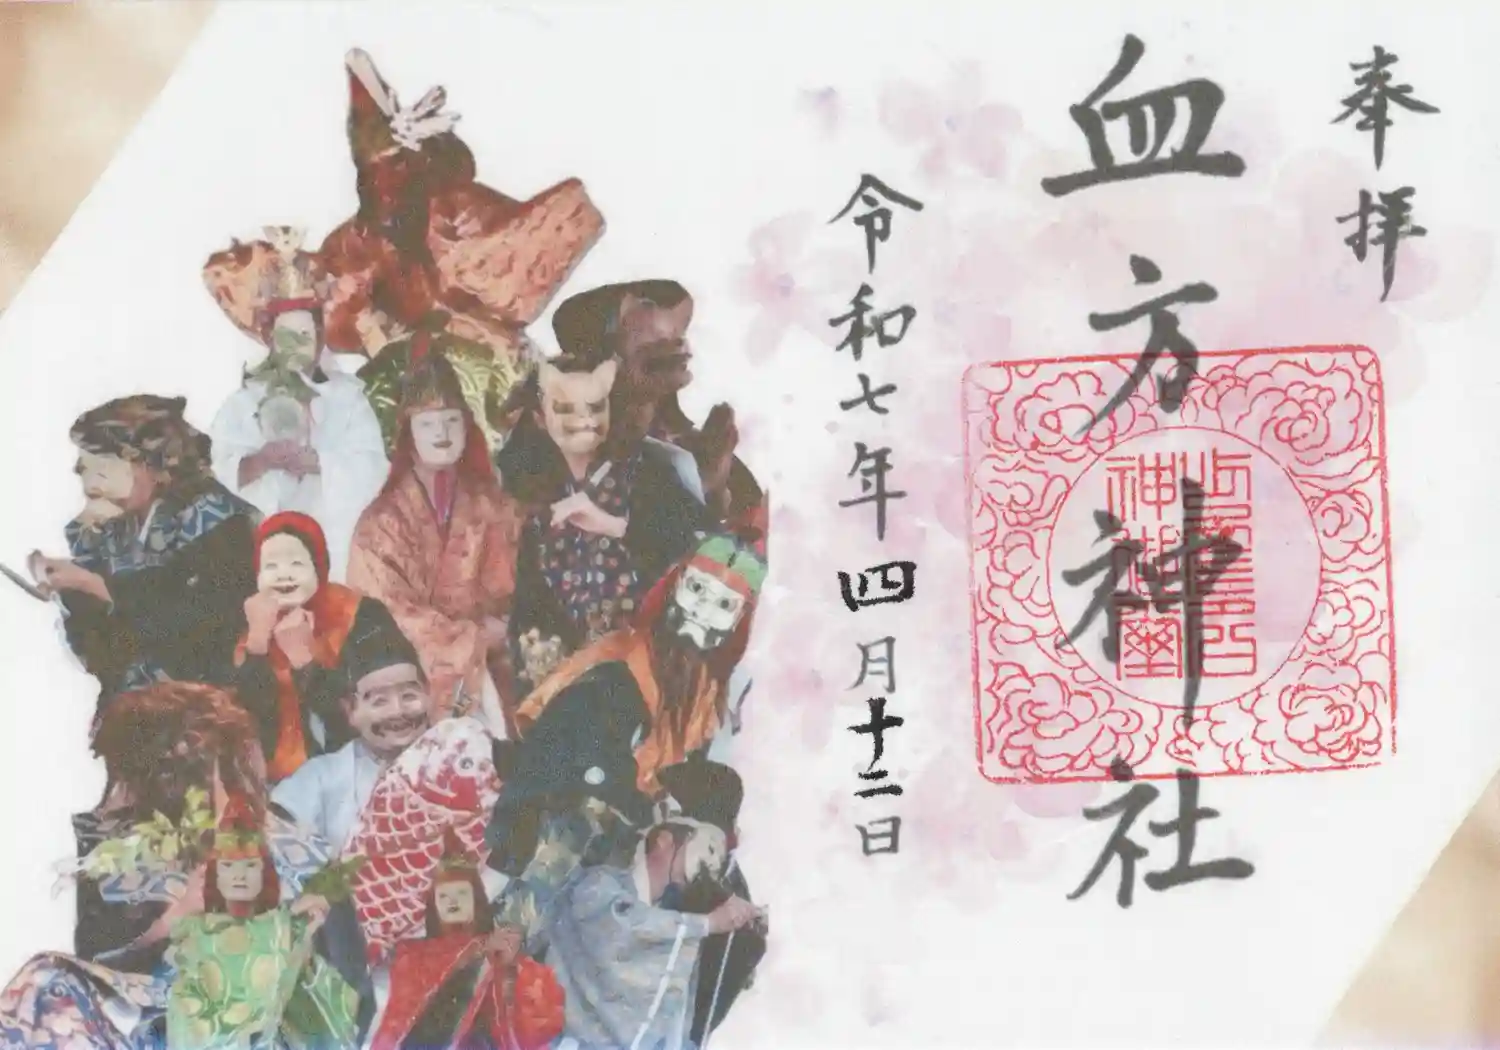 奉拝
血方神社
令和七年四月十二日